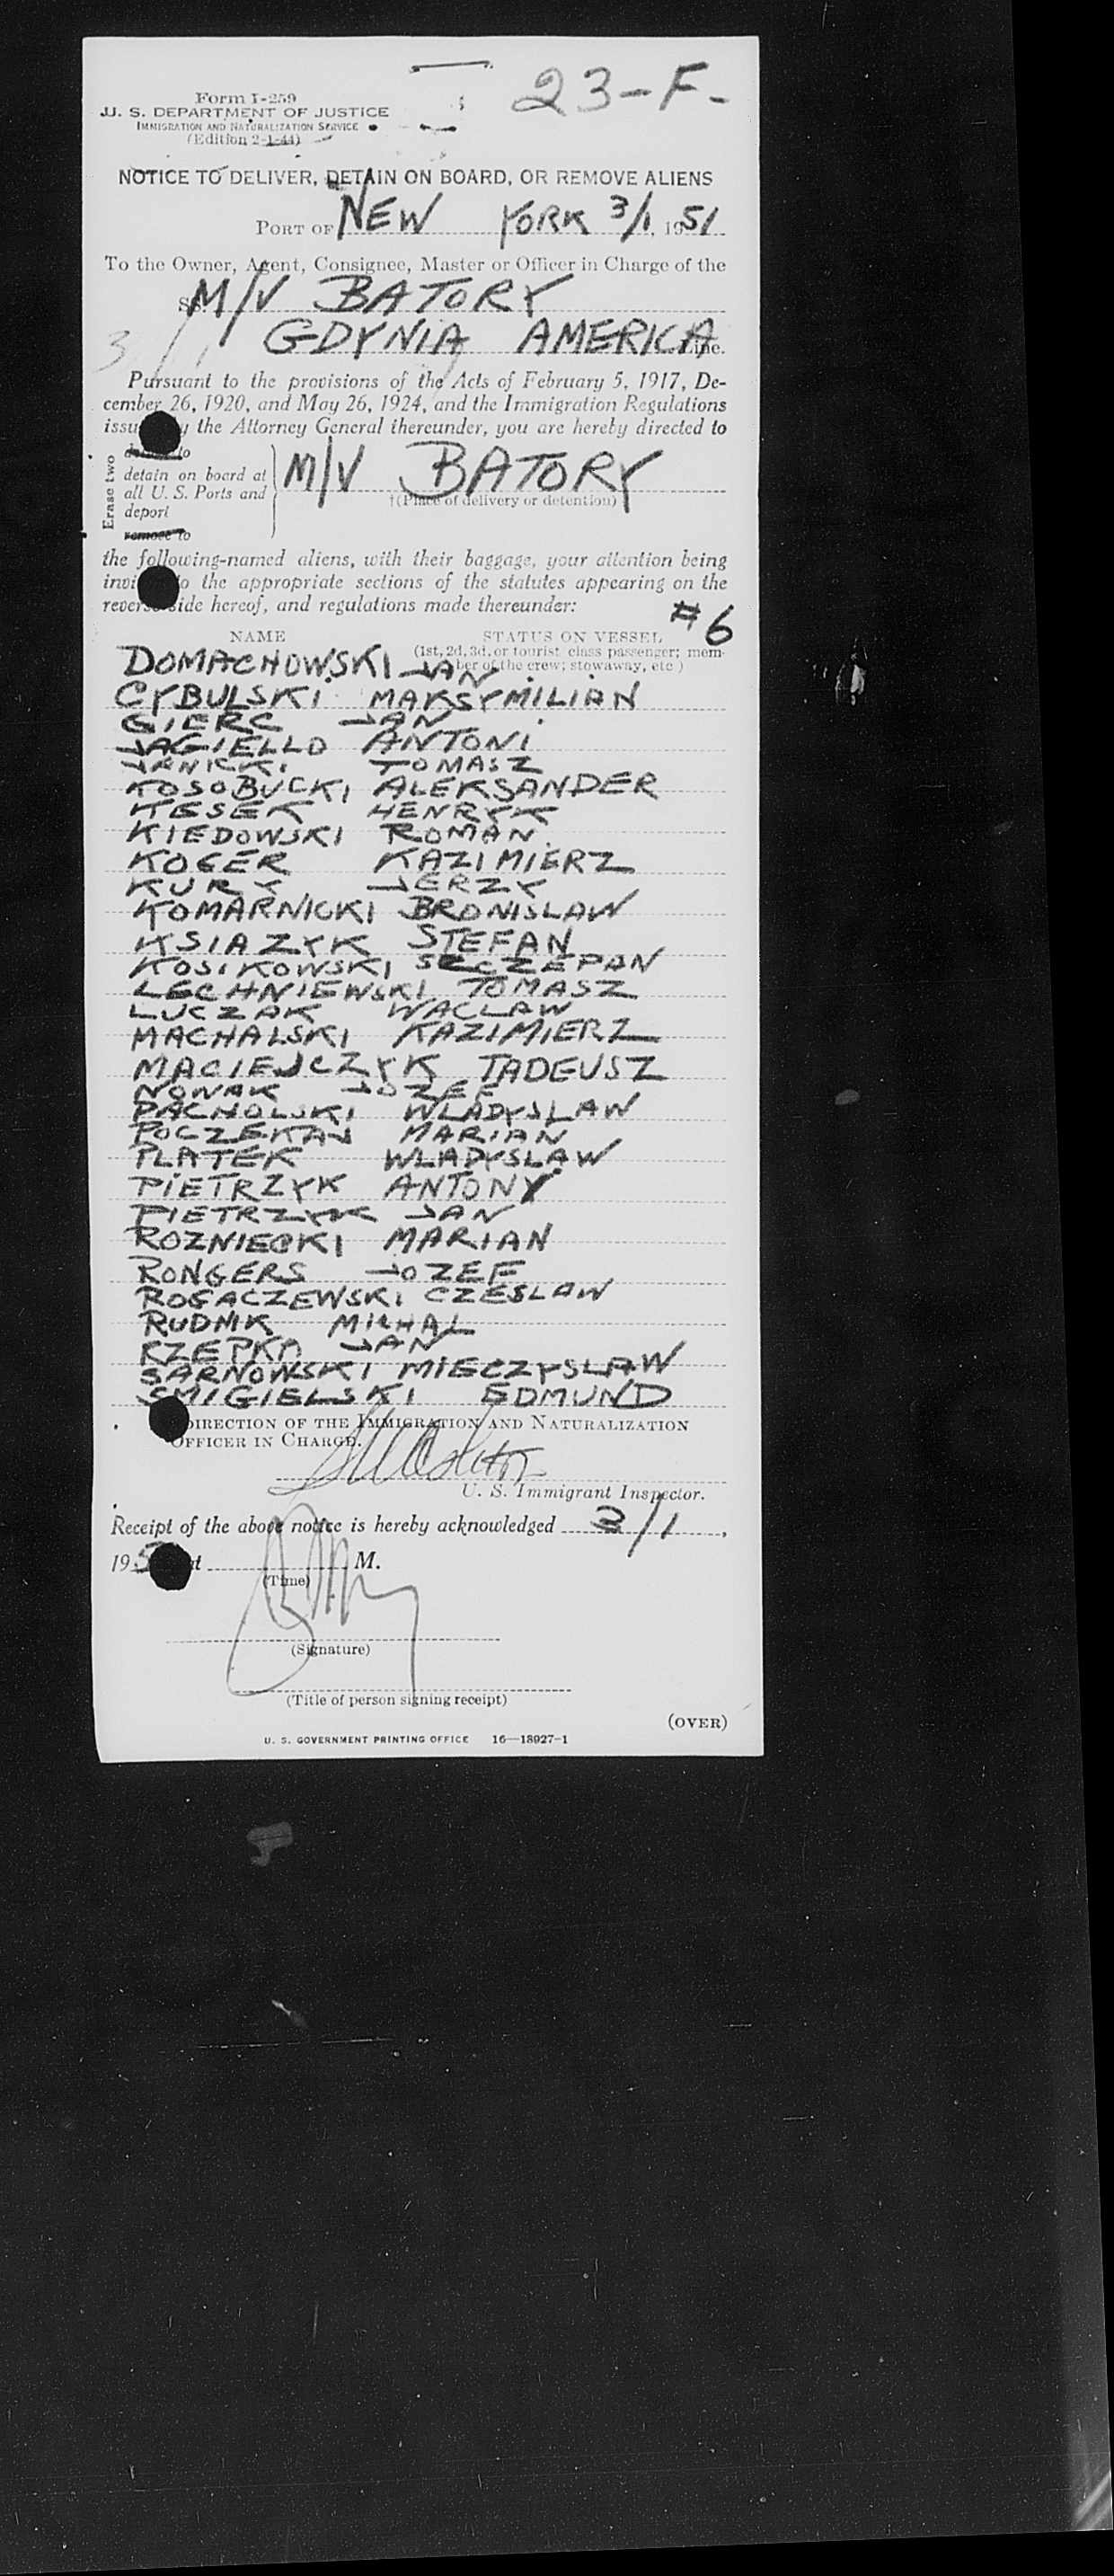 23-F-
Form I-259
U. S. DEPARTMENT OF JUSTICE
IMMIGRATION AND NATURALIZATION SERVICE
(Edition 2-1-44)
NOTICE TO DELIVER, DETAIN ON BOARD, OR REMOVE ALIENS
PORT OF NEW YORK 3/1, 1951
To the Owner, Agent, Consignee, Master or Officer in Charge of the
SS. M/V BATORY
GDYNIA AMERICA Line.
Pursuant to the provisions of the Acts of February 5, 1917, De-
cember 26, 1920, and May 26, 1924, and the Immigration Regulations
issu y the Attorney General thereunder, you are hereby directed to
Erase two
to
detain on board at
all U. S. Ports and
deport
remove to
M/V BATORY
†(Place of delivery or detention)
the following-named aliens, with their baggage, your attention being
invi o the appropriate sections of the statutes appearing on the
reverse side hereof, and regulations made thereunder:
#6
NAME STATUS ON VESSEL
(1st, 2d, 3d, or tourist class passenger; mem-
ber of the crew; stowaway, etc.)
DOMACHOWSKI JAN
CYBULSKI MAKSYMILIAN
GIERC JAN
JAGIELLO ANTONI
JANICKI TOMASZ
KOSOBUCKI ALEKSANDER
KESEK HENRYK
KIEDOWSKI ROMAN
KOGER KAZIMIERZ
KURY JERZY
KOMARNICKI BRONISLAW
KSIAZYK STEFAN
KOSIKOWSKI SZCZEPAN
LECHNIEWSKI TOMASZ
LUCZAK WACLAW
MACHALSKI KAZIMIERZ
MACIEJCZYK TADEUSZ
NOWAK JOZEF
PACHOLSKI WLADYSLAW
POCZEKAJ MARIAN
PLATEK WLADYSLAW
PIETRZYK ANTONY
PIETRZYK JAN
ROZNIECKI MARIAN
RONGERS JOZEF
ROGACZEWSKI CZESLAW
RUDNIK MICHAL
RZEPKA JAN
SARNOWSKI MIECZYSLAW
SMIGIELSKI EDMUND
DIRECTION OF THE IMMIGRATION AND NATURALIZATION
OFFICER IN CHARGE.
U. S. Immigrant Inspector.
Receipt of the above notice is hereby acknowledged 3/1,
195 t M.
(Time)
(Signature)
(Title of person signing receipt)
(OVER)
U. S. GOVERNMENT PRINTING OFFICE 16—18927-1